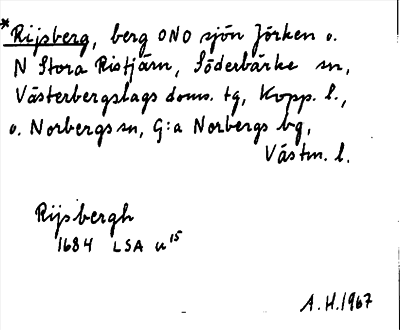 *Rijsberg, berg ONO sjön Jörken o.
N Stora Ristjärn, Söderbärke sn,
Västerbergslags doms. tg, Kopp. l.,
o. Norbergs sn, G:a Norbergs bg,
Västm. l.
Rijsbergh
1684 LSA u15
A.H.1967